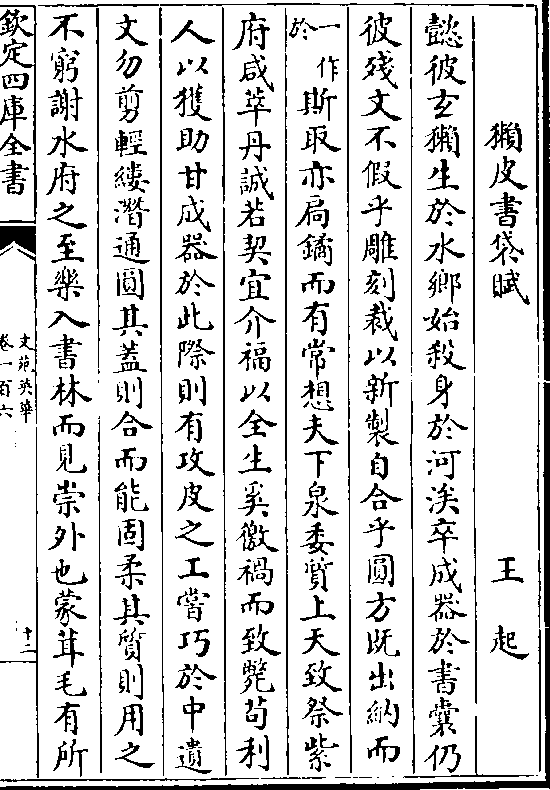 獺皮書袋賦　王起
懿彼玄獺生於水鄉始殺身於河涘卒成器於書囊仍
彼殘文不假乎雕刻裁以新製自合乎圓方既出納而
一作於斯取亦扃鐍而有常想夫下泉委質上天致祭紫
府咸萃丹誠若契宜介福以全生奚徼禍而致斃苟利
人以獲助甘成器於此際則有攻皮之工嘗巧於中遺
文勿剪輕縷潛通圓其蓋則合而能固柔其質則用之
不窮謝水府之至樂入書林而見崇外也蒙茸毛有所
欽定四庫全書
文苑英華
卷一百六
十二